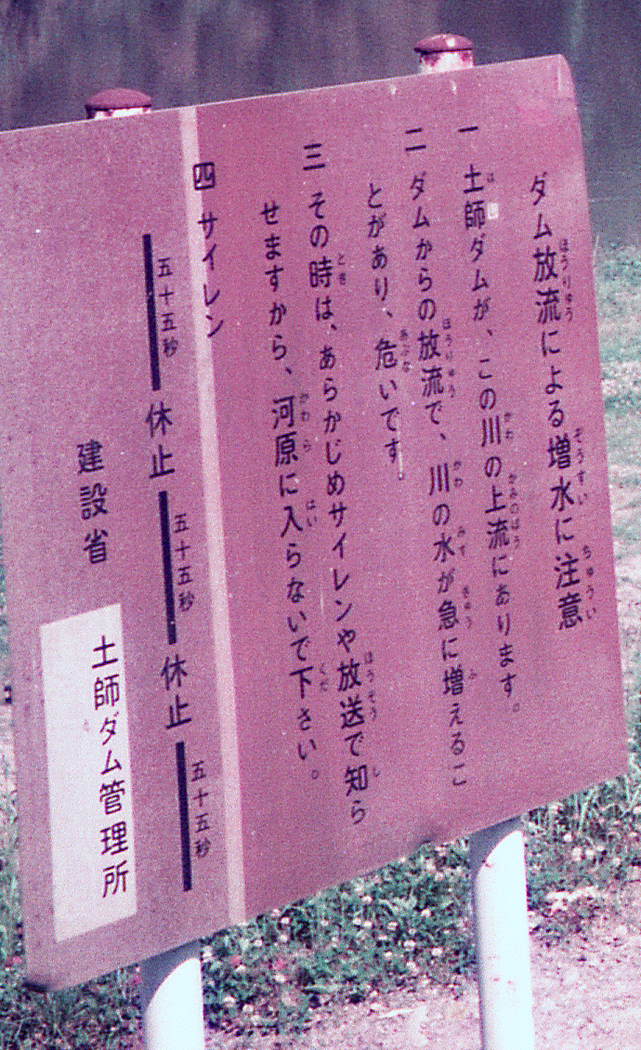 ダム放流による増水に注意
一 土師ダムが、この川の上流にあります。
二 ダムからの放流で、川の水が急に増えるこ
とがあり、危いです。
三 その時は、あらかじめサイレンや放送で知ら
せますから、河原に入らないで下さい。
四 サイレン
五十五秒 休止 五十五秒 休止 五十五秒
建設省
土師ダム管理所